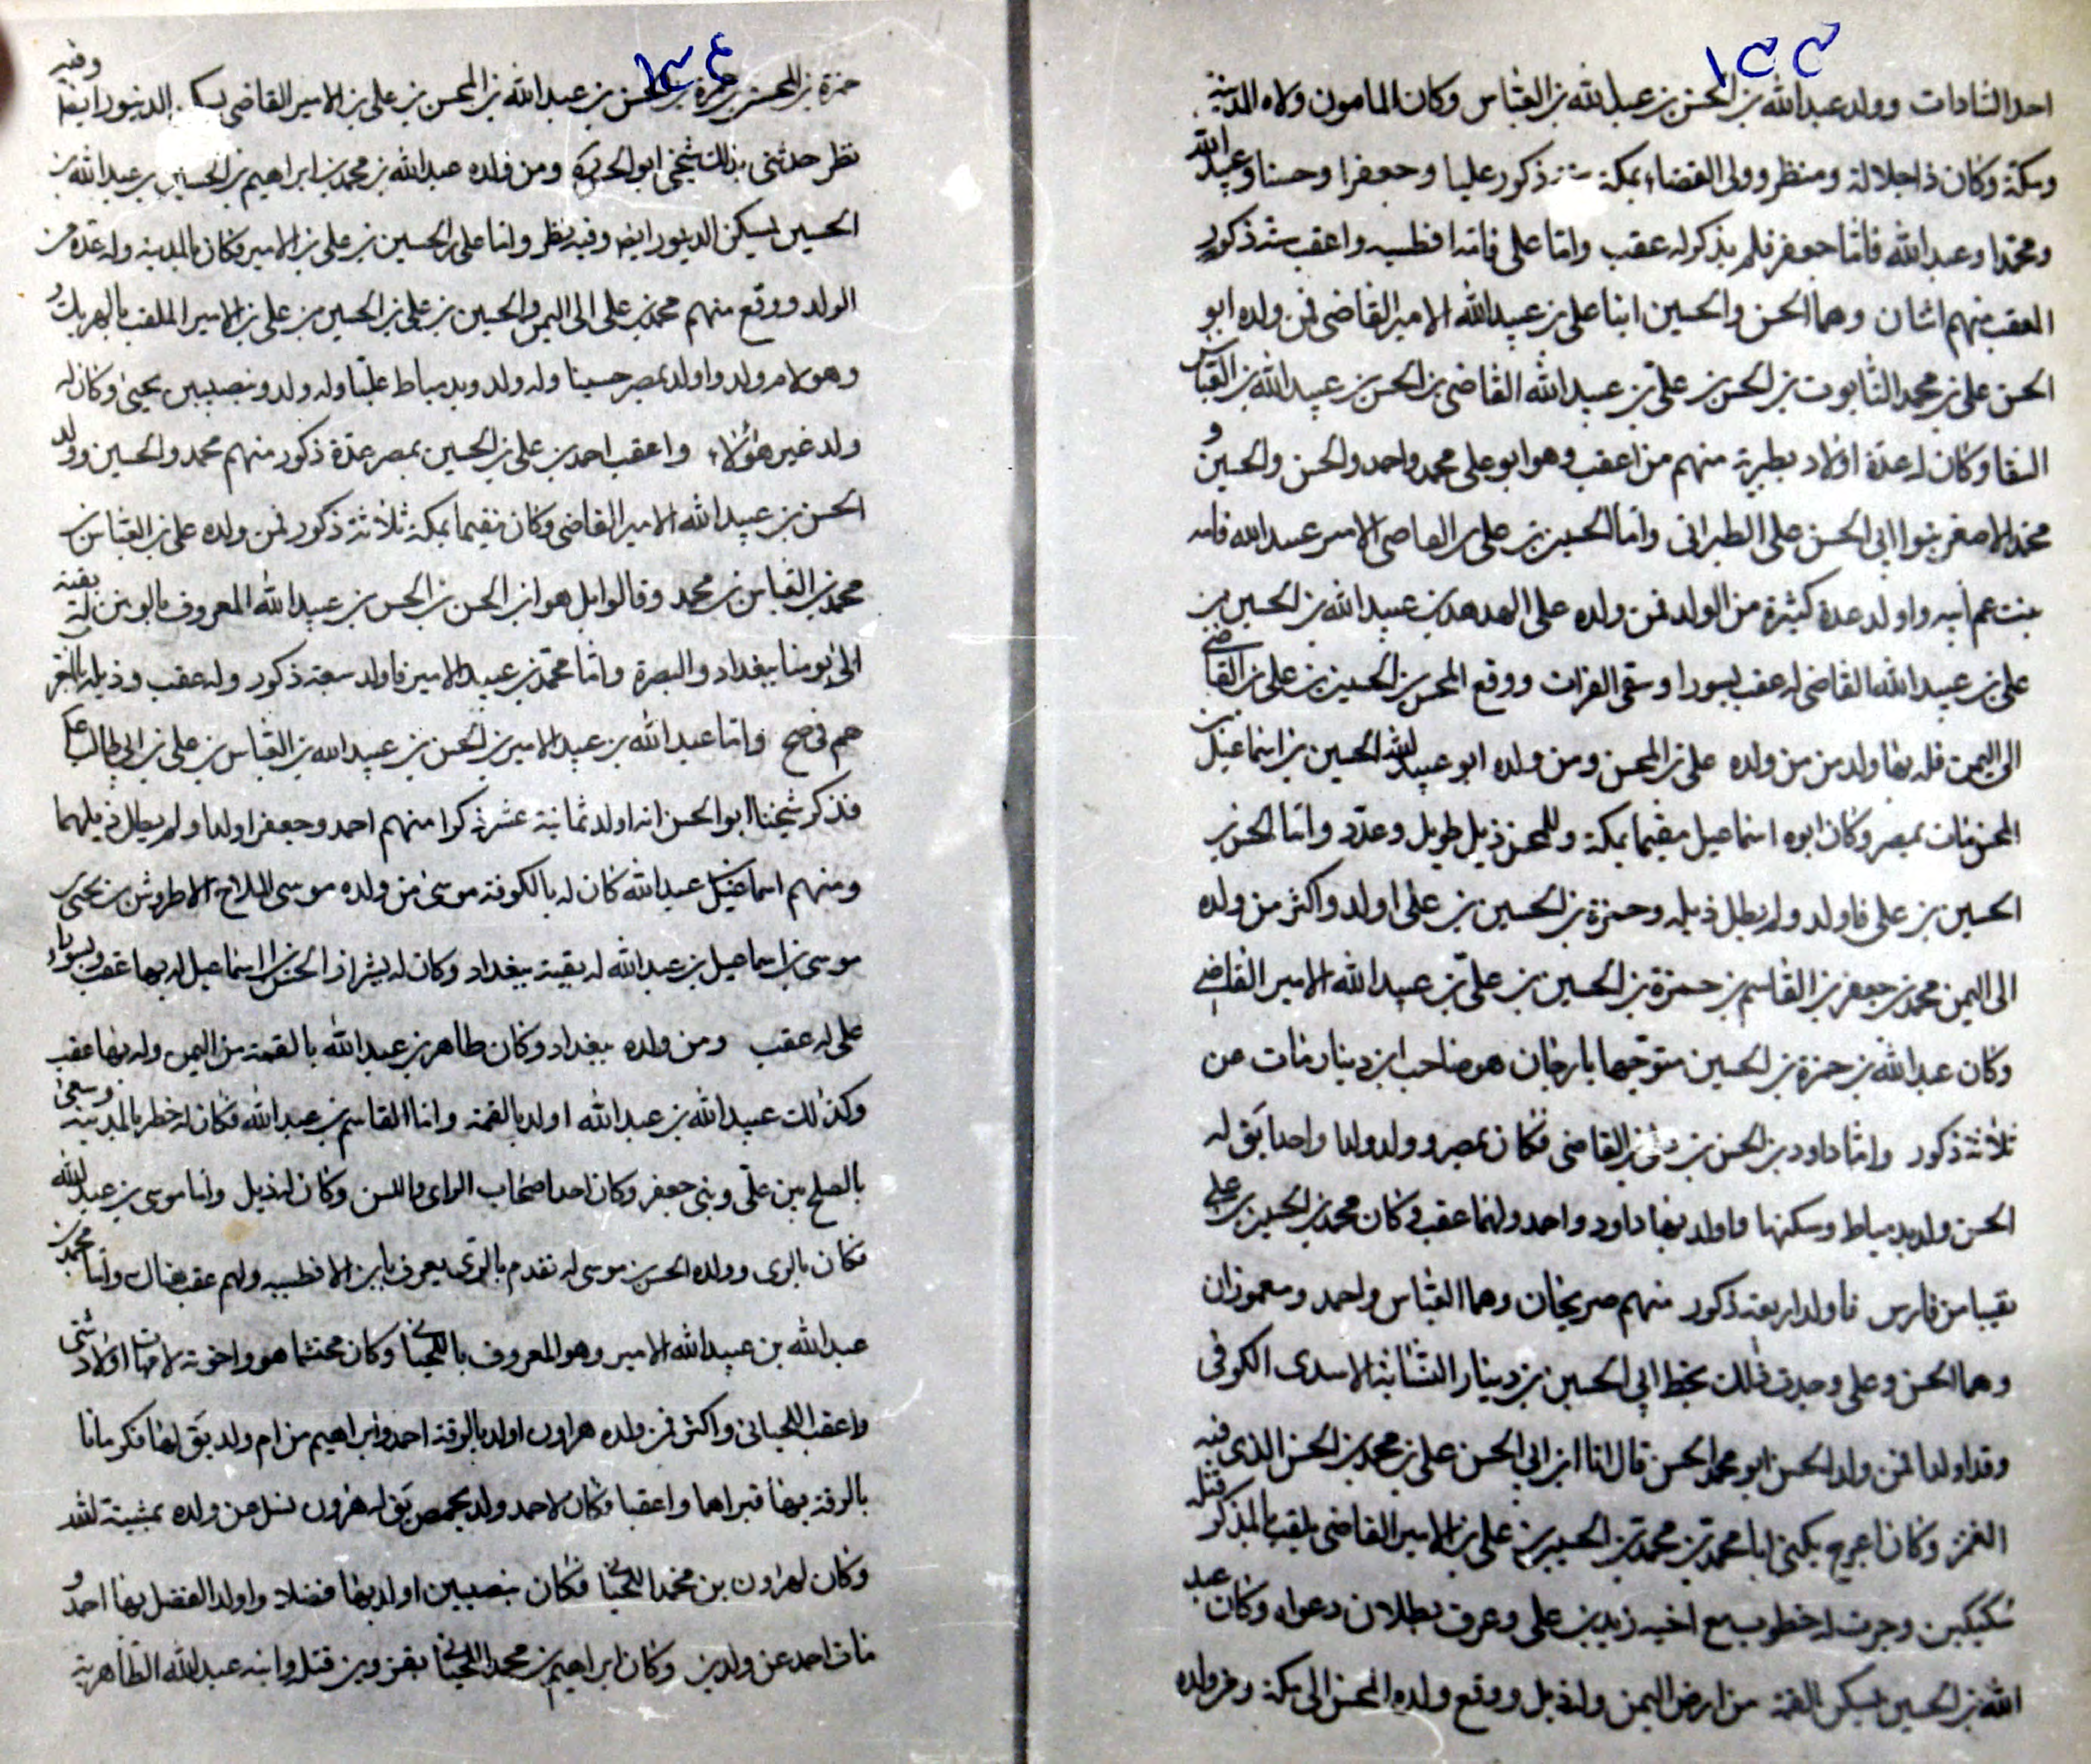 ١٣٣
احد السادات وولد عبدالله بن الحسن بن عبيدالله بن العباس وكان المامون ولاه المدينة
ومكة وكان ذا جلالة ومنظر وولى القضاء بمكة ستة ذكور عليا وجعفرا وحسنا وعبيدالله
ومحمدا وعبدالله فاما جعفر فلم يذكر له عقب واما على فامه افطسيه واعقب ستة ذكور
العقب منهم اثنان وهما الحسن والحسين ابنا على بن عبيدالله الامير القاضى فمن ولده ابو
الحسن على بن محمد التابوت بن الحسن بن على بن عبيدالله القاضى بن الحسن بن عبيدالله بن العباس
السقا وكان له عدة اولاد بطبرية منهم من اعقب وهو ابو على محمد واحمد والحسن والحسين و
محمد الاصغر بنوا ابى الحسن على الطبرانى واما الحسين بن على بن القاضى الامير عبيدالله فامه
بنت عم ابيه واولد عدة كثيرة من الولد فمن ولده على الهدهد بن عبيدالله بن الحسين بن
على بن عبيدالله القاضى له عقب بسورا وسقى الفرات ووقع المحسن بن الحسين بن على بن القاضى
الى اليمن فله بها ولد من ولده على بن المحسن ومن ولده ابو عبيدالله الحسين بن اسماعيل بن
المحسن مات بمصر وكان ابوه اسماعيل مقيما بمكة وللمحسن ذيل طويل وعدد واما الحسن بن
الحسين بن على فاولد ولم يطل ذيله وحمزة بن الحسين بن على اولد واكثر من ولده
الى اليمن محمد بن جعفر بن القاسم بن حمزة بن الحسين بن على بن عبيدالله الامير القاضى
وكان عبدالله بن حمزة بن الحسين متوجها بارجان هو صاحب ابن دينار مات عن
ثلاثة ذكور واما داود بن الحسن بن على بن القاضى فكان بمصر وولد ولدا واحدا يقَ له
الحسن ولد بدمياط وسكنها فاولد بها داود واحمد ولهما عقب وكان محمد بن الحسين بن على
نقيبا من فارس فاولد اربعة ذكور منهم صريحان وهما العباس واحمد ومغموزان
وهما الحسن وعلى وجدت ذلك بخط ابى الحسين بن دينار النسابة الاسدى الكوفى
وقد اولدا فمن ولد الحسن ابو محمد الحسن قال انا ابن ابى الحسن على بن محمد بن الحسن الذى فيه
الغمز وكان اعرج يكنى ابا محمد بن محمد بن الحسين بن على بن الامير القاضى يلقب بالمذكر قتله
سكيكين وجرت له خطوب مع اخيه زيد بن على وعرف بطلان دعواه وكان عبد
الله بن الحسين يسكن القمة من ارض اليمن وله ذيل ووقع ولده المحسن الى مكة ومن ولده
١٣٤
حمزة بن المحسن بن حمزة بن الحسن بن عبدالله بن المحسن بن على بن الامير القاضى يسكن الدينور ايضا وفيه
نظر حدثنى بذلك شيخى ابو الحسن ومن ولده عبدالله بن محمد بن ابراهيم بن الحسين بن عبدالله بن
الحسين يسكن الدينور ايضا وفيه نظر واما على بن الحسين بن على بن الامير فكان بالمدينه وله عدة من
الولد ووقع منهم محمد بن على الى اليمن والحسين بن على بن الحسين بن على بن الامير الملقب
وهو لام ولد واولد بمصر حسينا وله ولد وبدمياط عليا وله ولد وبنصيبين يحيى وكان له
ولد غير هؤلاء واعقب احمد بن على بن الحسين بمصر عدة ذكور منهم محمد والحسين وولد
الحسن بن عبيدالله الامير القاضى وكان مقيما بمكة ثلاثة ذكور فمن ولده على بن العباس بن
محمد بن العباس بن محمد وقالوا بل هو ابن الحسن بن الحسن بن عبيدالله المعروف له بقية
الى يومنا ببغداد والبصرة واما محمد بن عبيد الامير فاولد سبعة ذكور وله عقب وذيله بالمغرب
هم فى صح واما عبدالله بن عبيد الامير بن الحسن بن عبيدالله بن العباس بن على بن ابى طالب ع
فذكر شيخنا ابو الحسن انه اولد ثمانية عشر ذكرا منهم احمد وجعفر اولدا ولم يطل ذيلهما
ومنهم اسماعيل بن عبدالله كان له بالكوفة موسى فمن ولده موسى الملاح الاطروش بن يحيى بن
موسى بن اسماعيل بن عبدالله له بقية ببغداد وكان له بشيراز الحسن بن اسماعيل له بها عقب وبسورا
على له عقب ومن ولده ببغداد وكان طاهر بن عبدالله بالقمة من اليمن وله بها عقب
وكذلك عبيدالله بن عبدالله اولد بالقمة واما القاسم بن عبدالله فكان له خطر بالمدينة وسعى
بالصلح بين على وبنى جعفر وكان احد اصحاب الراى واللسن وكان له ذيل واما موسى بن عبدالله
فكان بالرى وولده الحسن بن موسى له تقدم بالرى يعرف بابن الافطسيه ولهم عقب هناك واما محمد بن
عبدالله بن عبيدالله الامير وهو المعروف باللحيانى وكان محتشما هو واخوته لامهات اولاد شتى
واعقب اللحيانى واكثر فمن ولده هرون اولد بالرقة احمد وابراهيم من ام ولد يقَ لها ماتا
بالرقة بها قبراهما واعقبا وكان لاحمد ولد بحمص يقَ له هرون نسل من ولده بمشية الله
وكان لهرون بن محمد اللحيانى فكان بنصيبين اولد بها فضلا واولد الفضل بها احمد و
مات احمد عن ولدين وكان ابراهيم بن محمد اللحيانى بقزوين قتل وابنه عبدالله الطاهرية